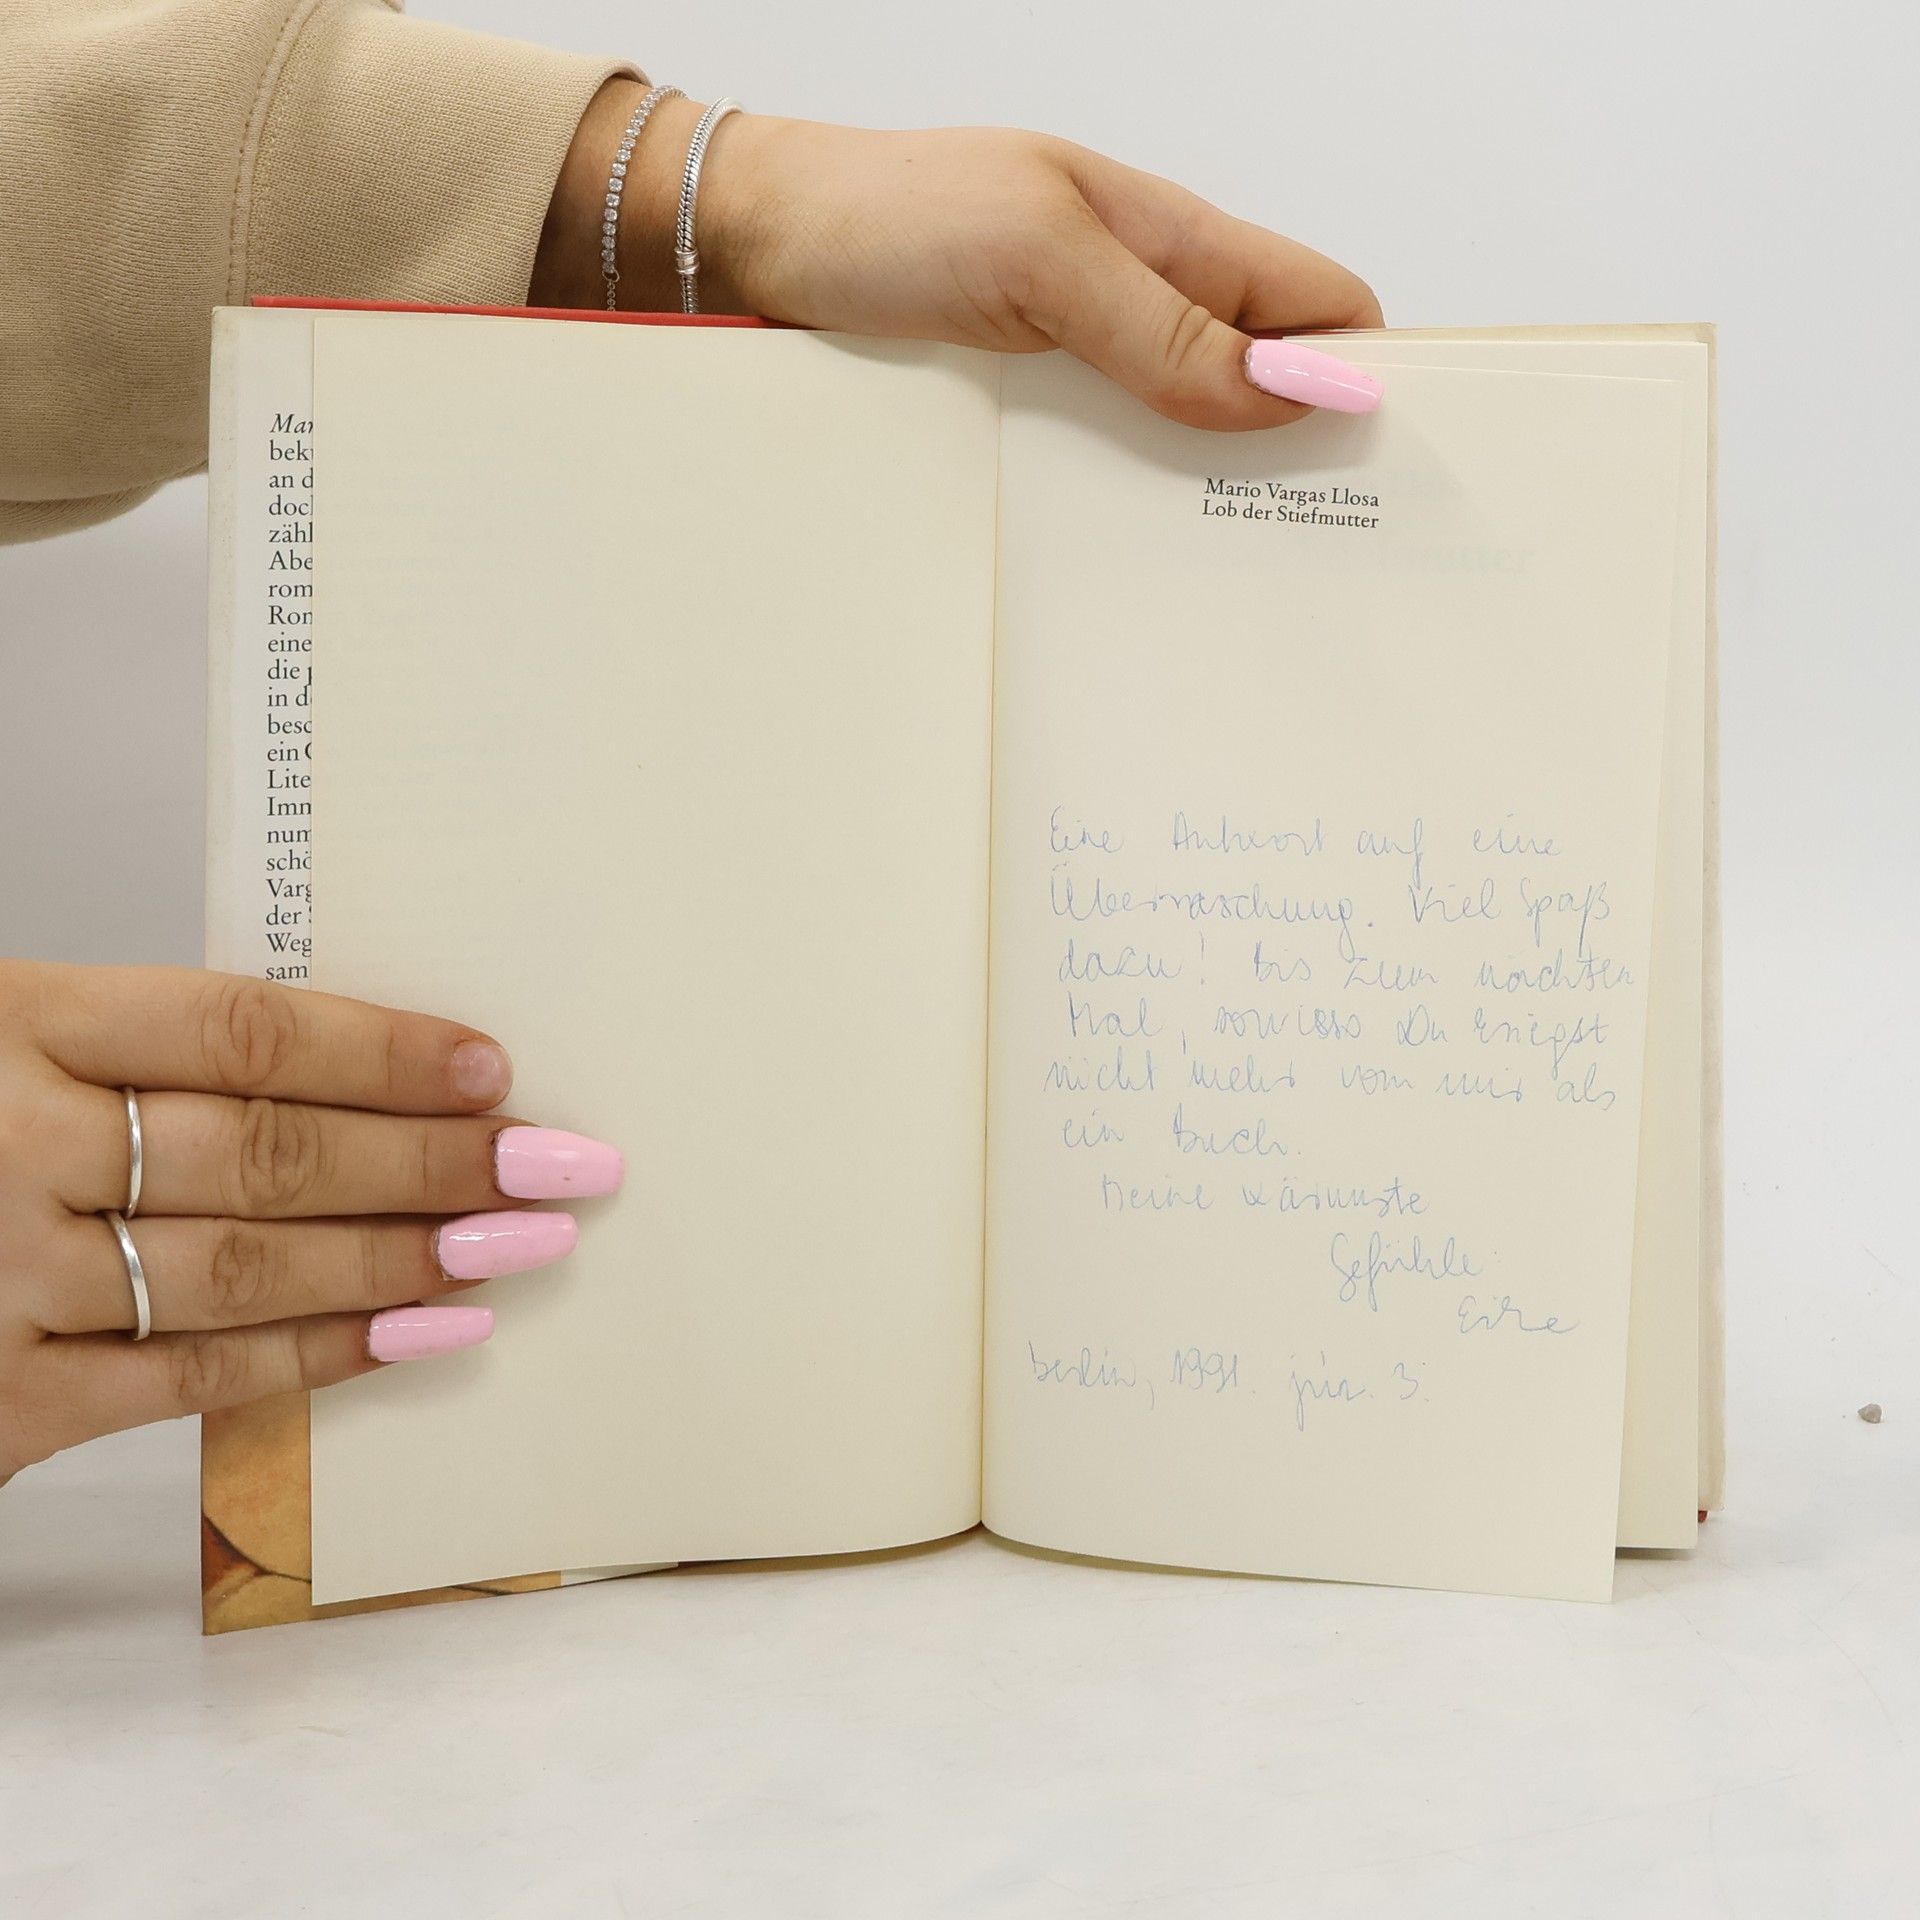 Mar
bek
an d
doch
zähl
Abe
rom
Ron
eine
die p
in de
besc
ein G
Lite
Imm
num
schö
Varg
der S
Weg
sam
Mario Vargas Llosa
Lob der Stiefmutter
Eine Antwort auf eine
Überraschung. Viel Spaß
dazu! Bis zum nächsten
Mal, sowieso Du kriegst
nicht mehr vom mir als
ein Buch.
Meine wärmste
Gefühle
Berlin, 1991. jún. 3.